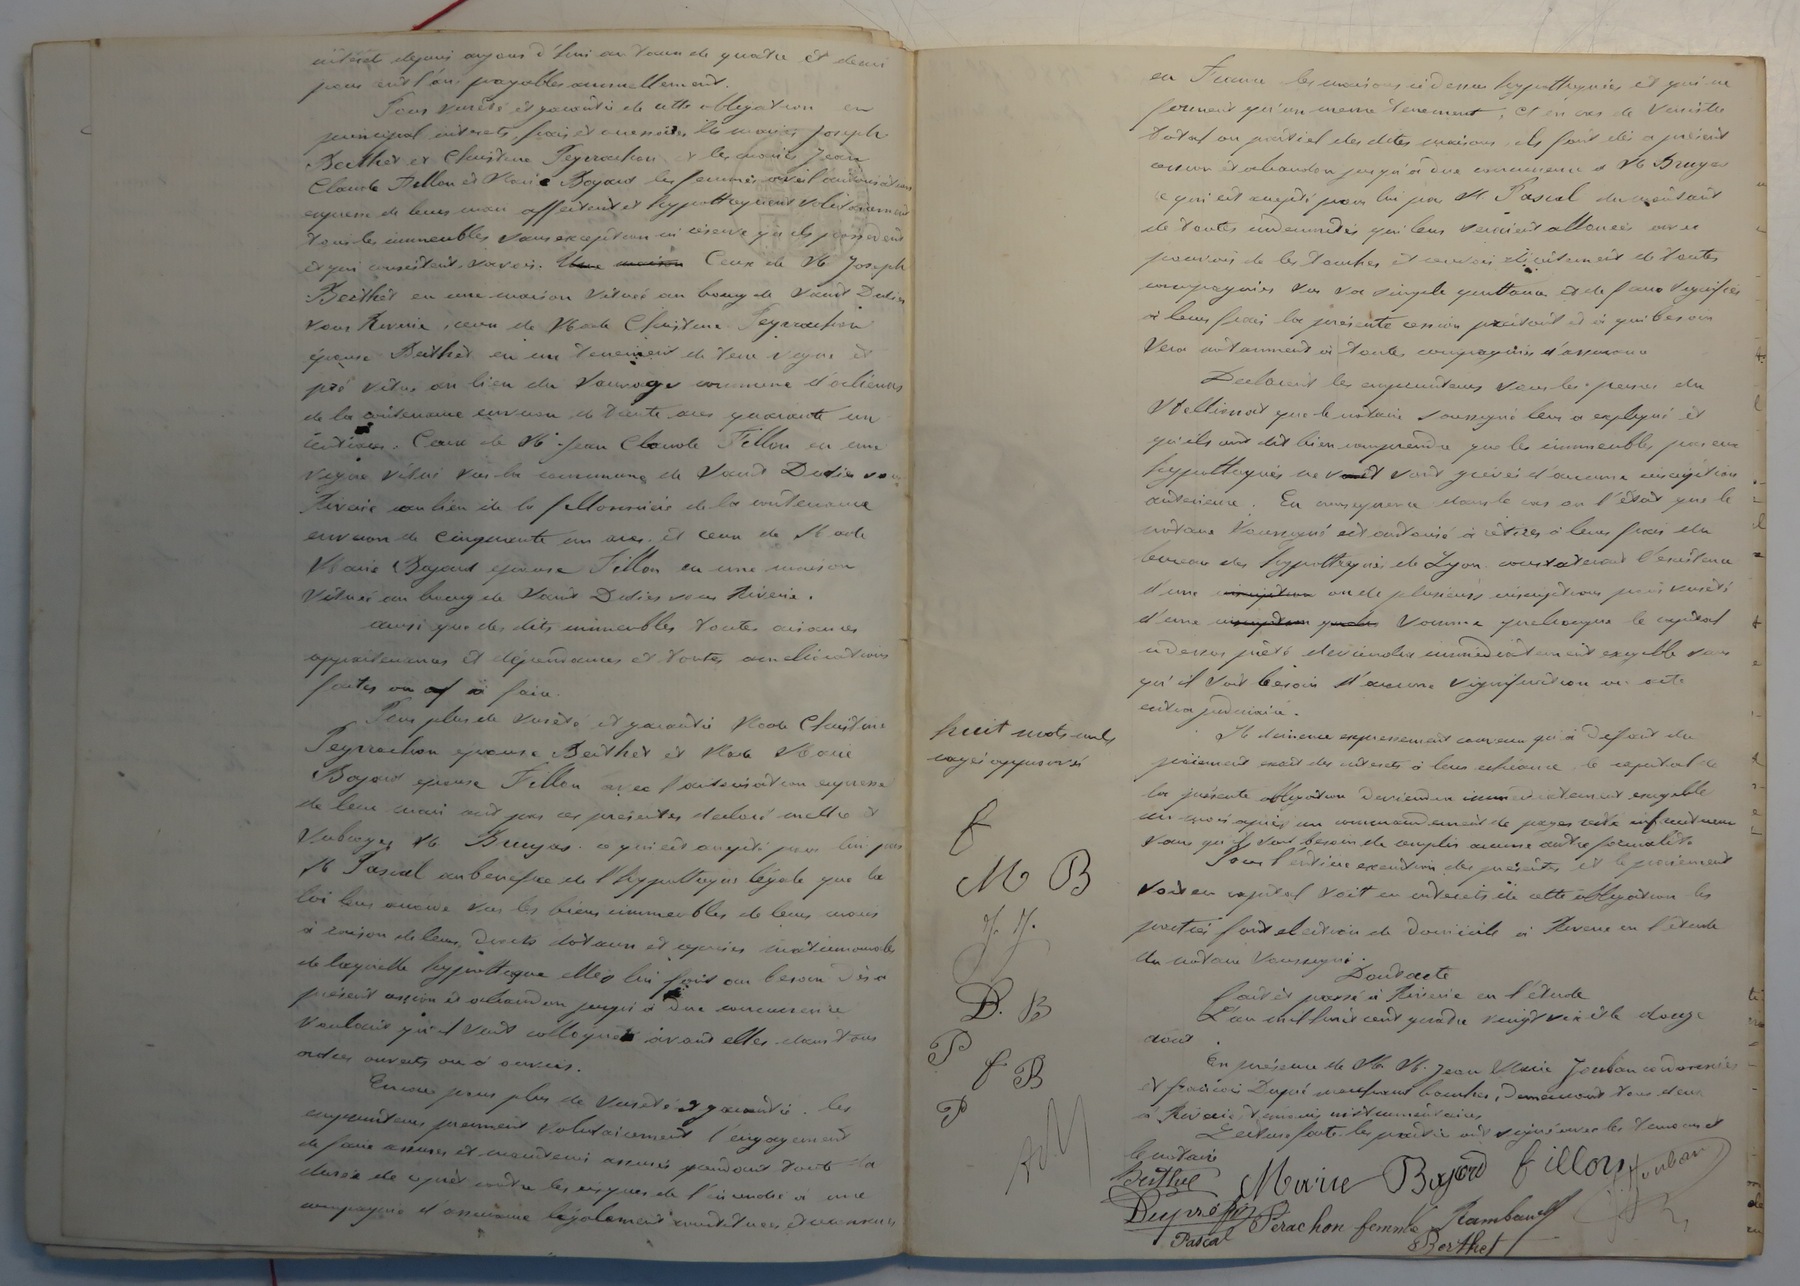 intérêt depuis aujourd'hui au taux de quatre et demi
pour cent l'an payables annuellement.
Pour sureté et garantie de cette obligation en
principal intérêts, frais et accessoires les mariés Joseph
Berthet et Claudine Peyrachon et les mariés Jean
Claude Fillon et Marie Bajard les femmes avec l'autorisation
expresse de leurs mari affectent et hypothèquent solidairement
tous les immeubles sans exception ni réserve qu'ils possèdent
et qui consistent, savoir. Une maison Ceux de M. Joseph
Berthet en une maison située au bourg de Saint Didier
sous Riverie, ceux de Made Claudine Peyrachon
épouse Berthet en un tenement de terre vigne et
pré situé au lieu du Sauvage commune
de la contenance environ de trente ares quarante un
centiares. Ceux de M. Jean Claude Fillon en une
vigne située sur la commune de Saint Didier sous
Riverie au lieu de la fillonnière de la contenance
environ de cinquante un ares. et ceux de Made
Marie Bajard épouse Fillon en une maison
située au bourg de Saint Didier sous Riverie.
ainsi que des dits immeubles toutes aisances
appartenances et dépendances et toutes améliorations
faites ou à faire.
Pour plus de sureté et garantie Made Claudine
Peyrachon épouse Berthet et Made Marie
Bajard épouse Fillon avec l'autorisation expresse
de leur mari ont par ces présentes déclaré mettre et
subroger M. Bruyas. ce qui est accepté pour lui par
M. Pascal au bénéfice de l'hypothèque légale que la
loi leur accorde sur les biens immeubles de leurs maris
à raison de leurs droits dotaux et reprises matrimoniales
de laquelle hypothèque elles lui font au besoin dès à
présent cession et abandon jusqu'à due concurrence
voulant qu'il soit colloqué avant elles dans tous
ordres ouverts ou à ouvrir.
Encore pour plus de sureté et garantie. les
emprunteurs prennent volontairement l'engagement
de faire assurer et maintenir assurés pendant toute la
durée du prêt contre les risques de l'incendie à une
compagnie d'assurance légalement constituée
en France les maisons ci dessus hypothéquées et qui ne
forment qu'un même tenement; Et en cas de sinistre
total ou partiel des dites maisons, ils font dès à présent
cession et abandon jusqu'à due concurrence à M. Bruyas
ce qui est accepté pour lui par M. Pascal du montant
de toutes indemnités qui leur seraient allouées avec
pouvoir de les toucher et recevoir directement de toutes
compagnies sur sa simple quittance et de faire signifier
à leurs frais la présente cession partout et à qui besoin
sera notamment à toutes compagnies d'assurance
Déclarent les emprunteurs sous les peines du
stellionat que le notaire soussigné leur a expliqué et
qu'ils ont dit bien comprendre que les immeubles par eux
hypothéqués ne sont grévés d'aucune inscription
antérieure. En conséquence dans le cas où l'état que le
notaire soussigné est autorisé à retirer à leurs frais du
bureau des hypothèques de Lyon constaterait l'existence
d'une inscription ou de plusieurs inscriptions pour sureté
d'une inscription somme quelconque le capital
ci dessus prêté deviendra immédiatement exigible sans
qu'il soit besoin d'aucune signification ou acte
extra judiciaire.
Il demeure expressement convenu qu'à défaut du
paiement exact des intérêts à leur échéance, le capital de
la présente obligation deviendra immédiatement exigible
un mois après un commandement de payer resté infructueux
sans qu'il soit besoin de remplir aucune autre formalité
Pour l'entière exécution des présentes et le paiement
soit en capital soit en intérêts de cette obligation les
parties font élection de domicile à Riverie en l'étude
du notaire soussigné.
Dont acte
fait et passé à Riverie en l'étude
L'an mil huit cent quatre vingt six et le douze
août
En présence de M. M. Jean Marie Jouban cordonnier
et françois Dupré marchand boucher, demeurant tous deux
à Riverie, témoins instrumentaires
Lecture faite les parties ont signé avec les témoins et
le notaire
huit mots nuls
rayés approuvés
f
M B
J. J.
D. B
P
f B
P
Berthet Marie Bajard fillon Jouban
Dupré Pérachon femme Rambaud
Pascal Berthet